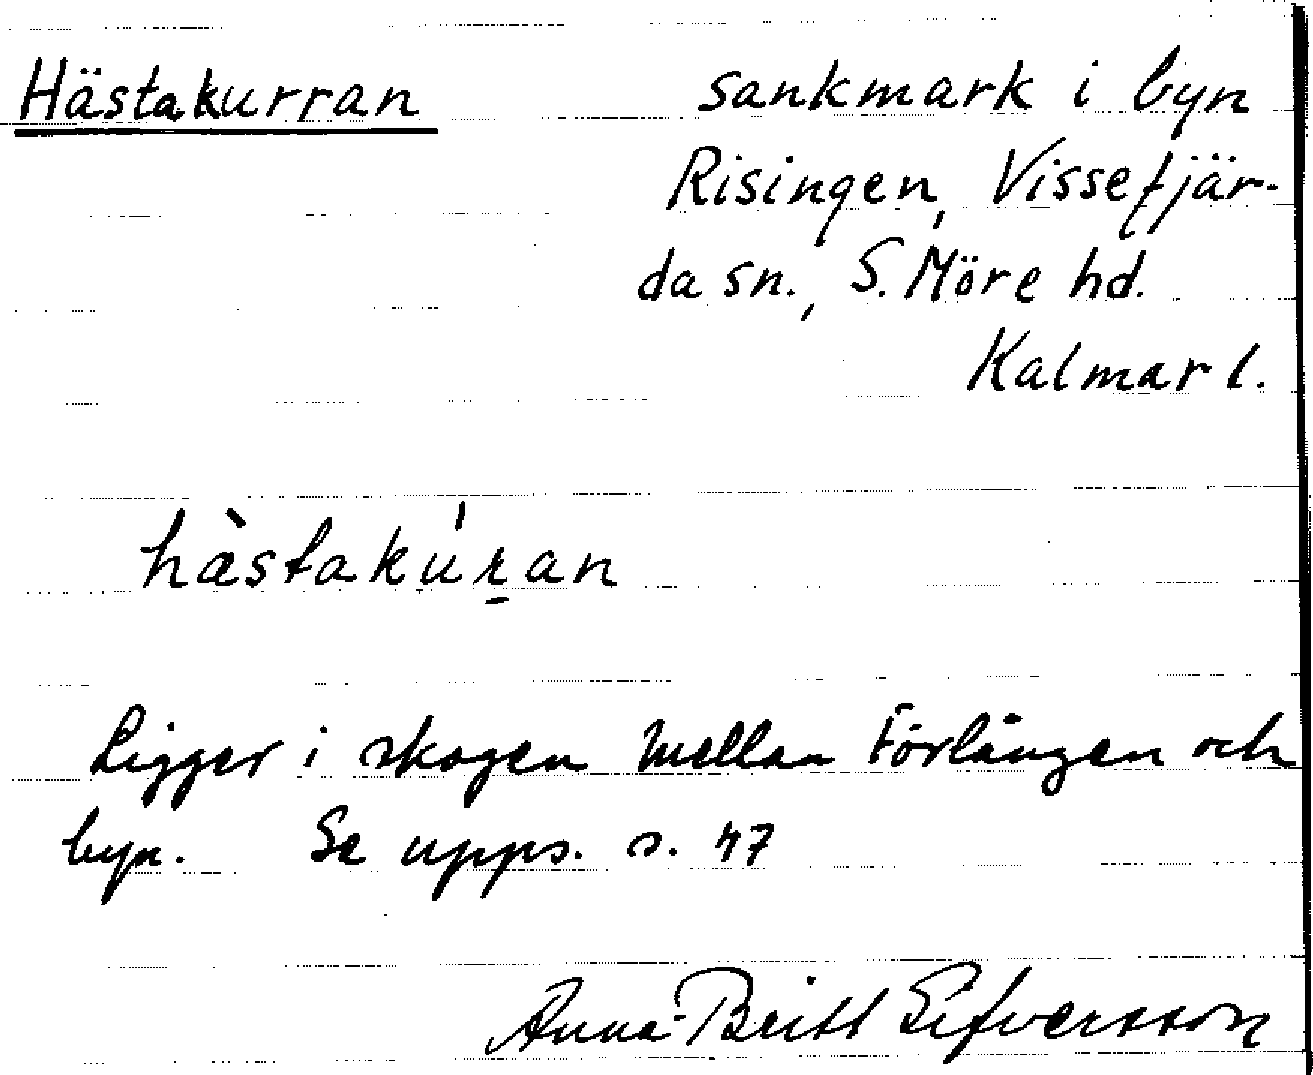 Hästakurran sankmark i byn
Risingen, Vissefjär-
da sn., S. Möre hd.
Kalmar l.
hàstakúran
Ligger i skogen mellan Förlången och
byn. Se upps. s. 47
Anna-Britt Sifversson